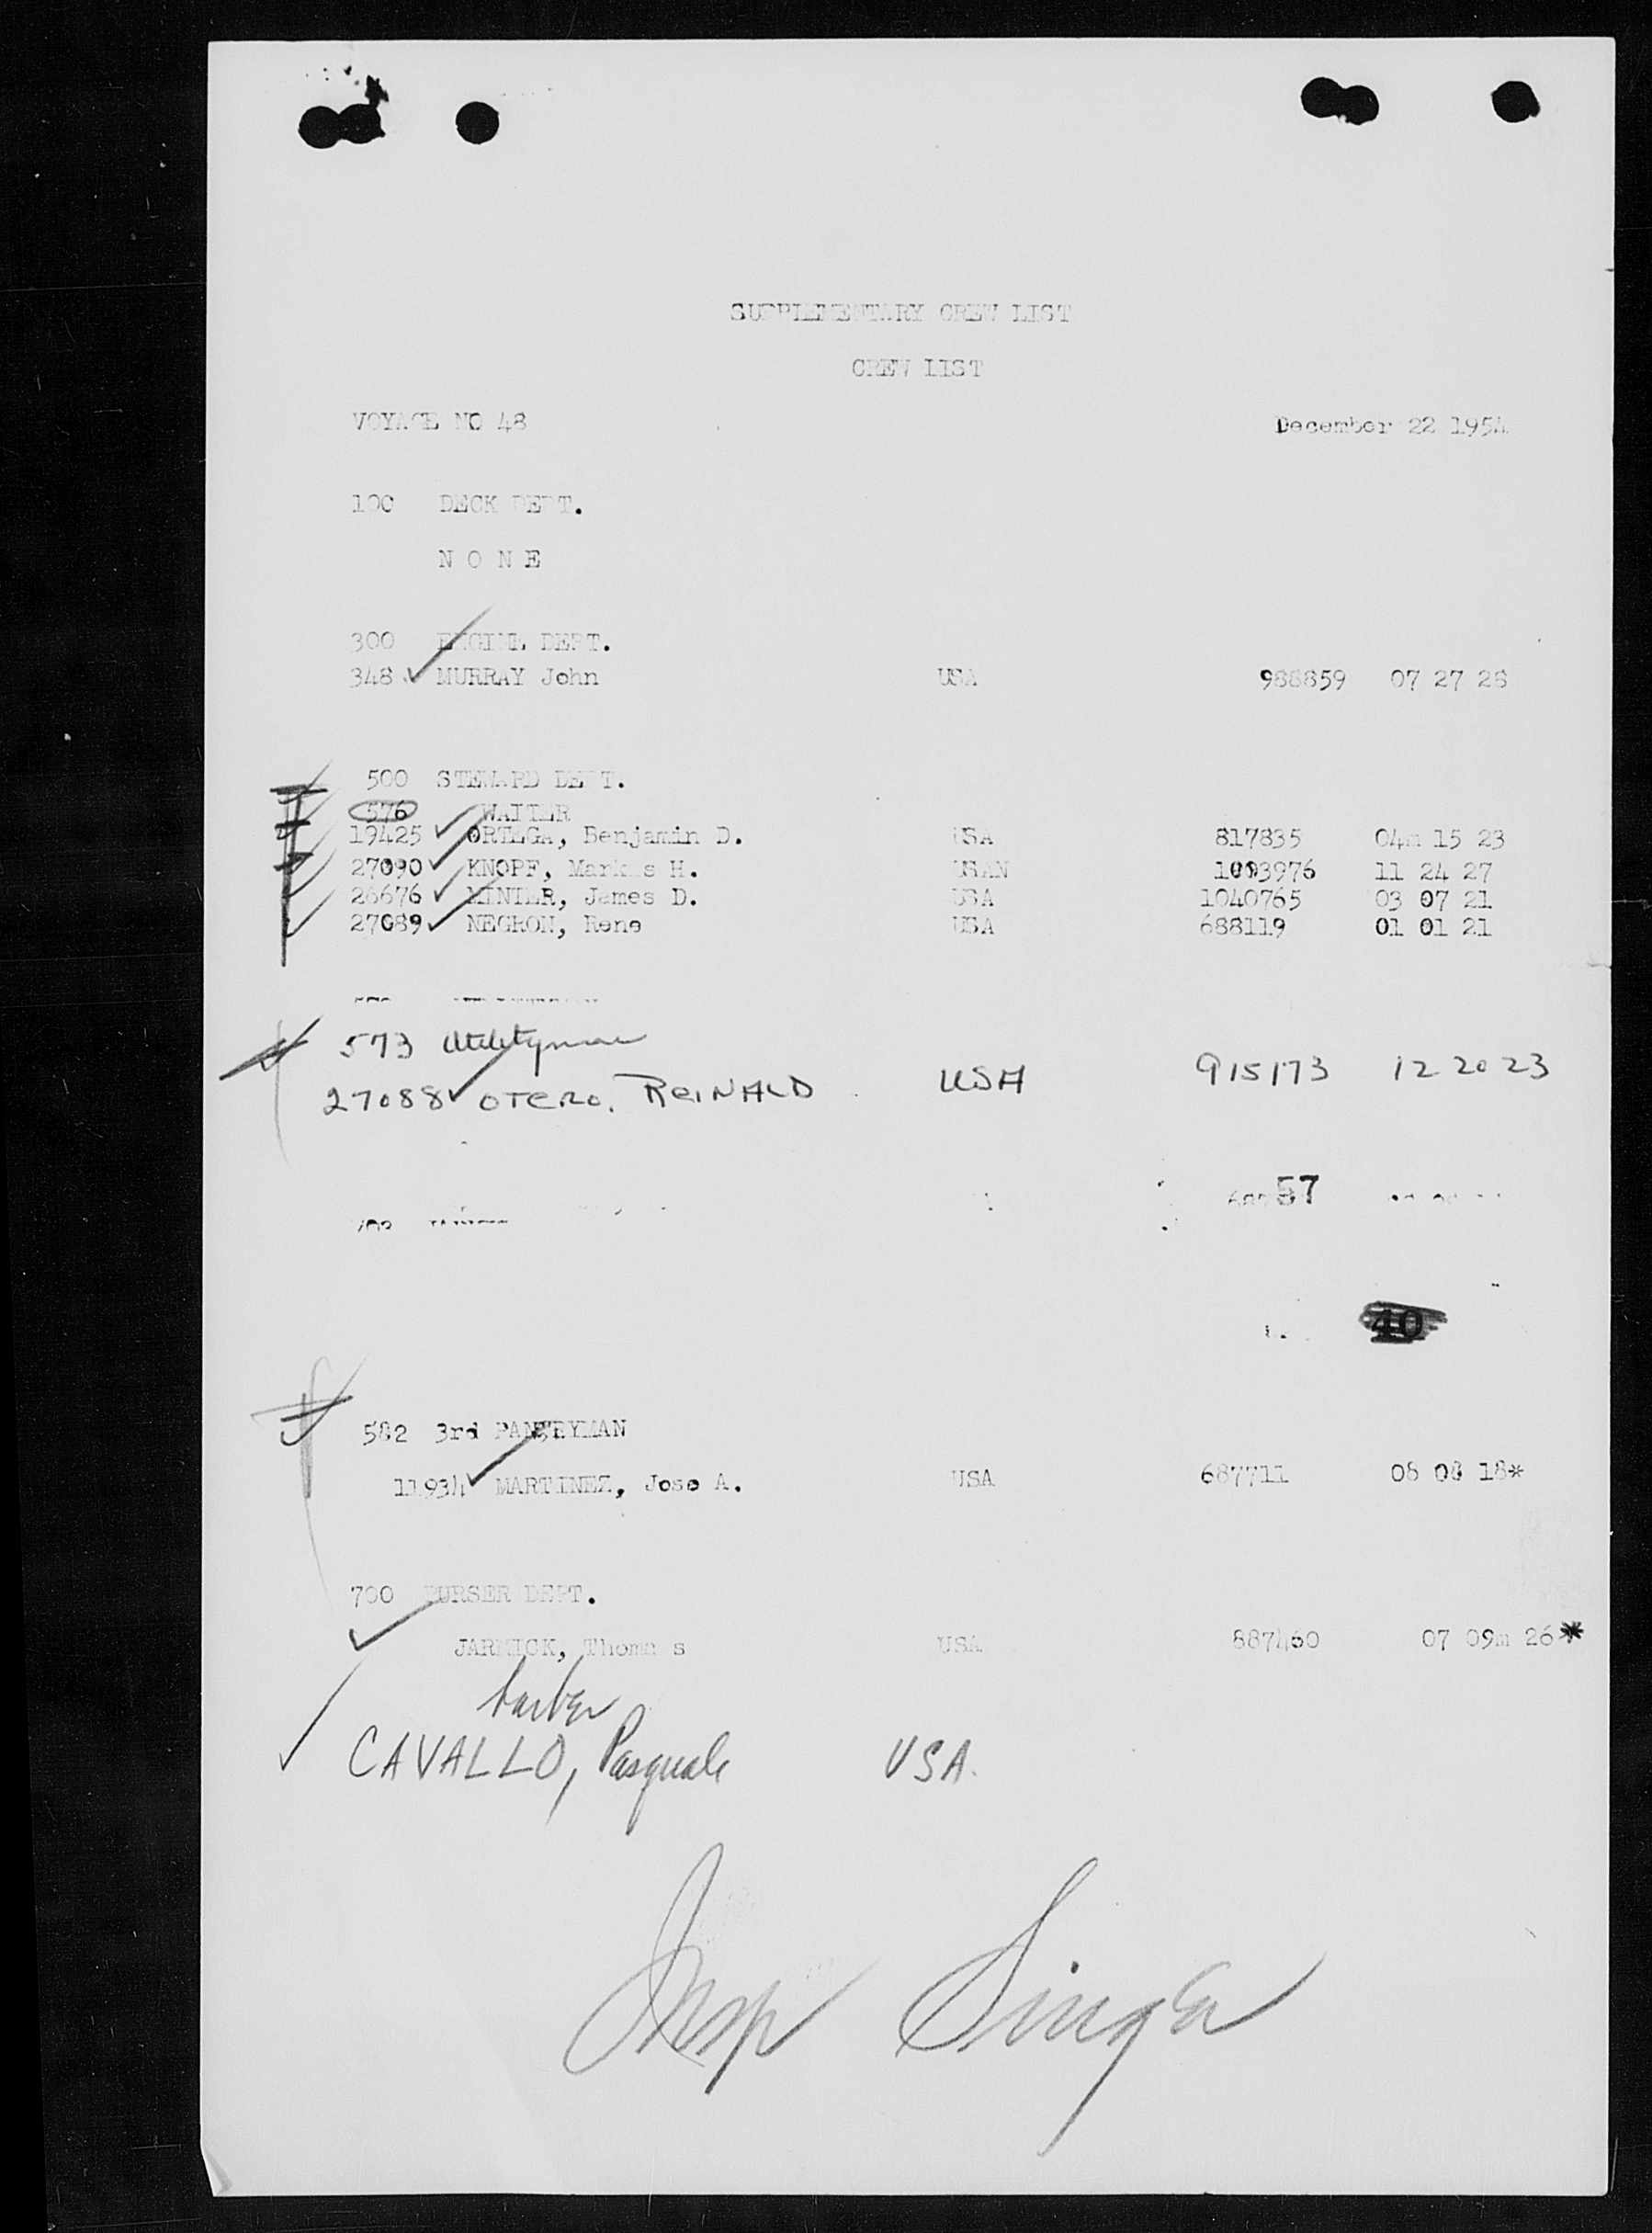 SUPPLEMENTARY CREW LIST
CREW LIST
VOYAGE NO 48 December 22 1954
100 DECK DEPT.
N O N E
300 ENGINE DEPT.
348 MURRAY John USA 988859 07 27 28
500 STEWARD DEPT.
576 WAITER
19425 ORTEGA, Benjamin D. USA 817835 04m 15 23
27090 KNOPF, Markus H. USAN 1003976 11 24 27
26676 MINIER, James D. USA 1040765 03 07 21
27089 NEGRON, Rene USA 688119 01 01 21
573 Utilityman
27088 OTERO, REINALD USA 915173 12 20 23
57
40
582 3rd PANTRYMAN
11934 MARTINEZ, Jose A. USA 687711 08 08 18*
700 PURSER DEPT.
JARMICK, Thomas USA 887460 07 09m 26*
barber
CAVALLO, Pasquale USA.
Insp Singer